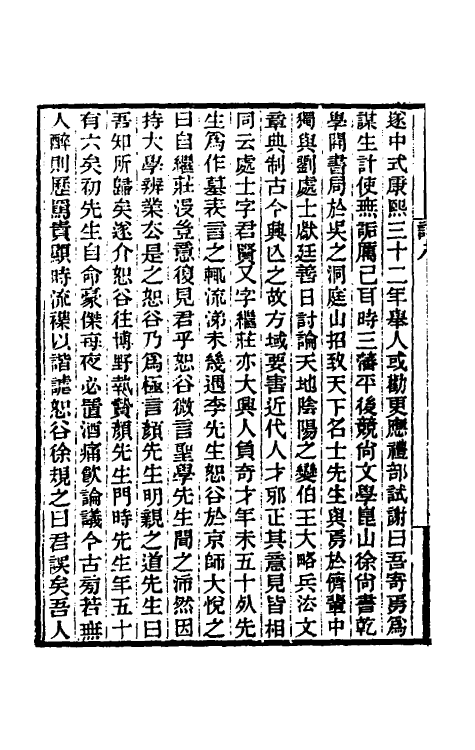 遂中式康熙三十二年舉人或勸更應禮部試謝曰吾寄焉爲
謀生計使無詬厲已耳時三藩平後競尙文學崑山徐尙書乾
學開書局於吳之洞庭山招致天下名士先生與焉於儕輩中
獨與劉處士獻廷善日討論天地陰陽之變伯王大略兵法文
章典制古今興亾之故方域要害近代人才邪正其意見皆相
同云處士字君賢又字繼莊亦大興人負奇才年未五十殁先
生爲作墓表言之輒流涕未幾遇李先生恕谷於京師大悅之
曰自繼莊沒豈意復見君乎恕谷微言聖學先生聞之沛然因
持大學辨業去是之恕谷乃爲極言顏先生明親之道先生曰
吾知所歸矣遂介恕谷往博野執贄顏先生門時先生年五十
有六矣初先生自命豪傑每夜必置酒痛飮論議今古菊若無
人醉則歷罵貴顯時流襍以諧謔恕谷徐規之曰君誤矣吾人